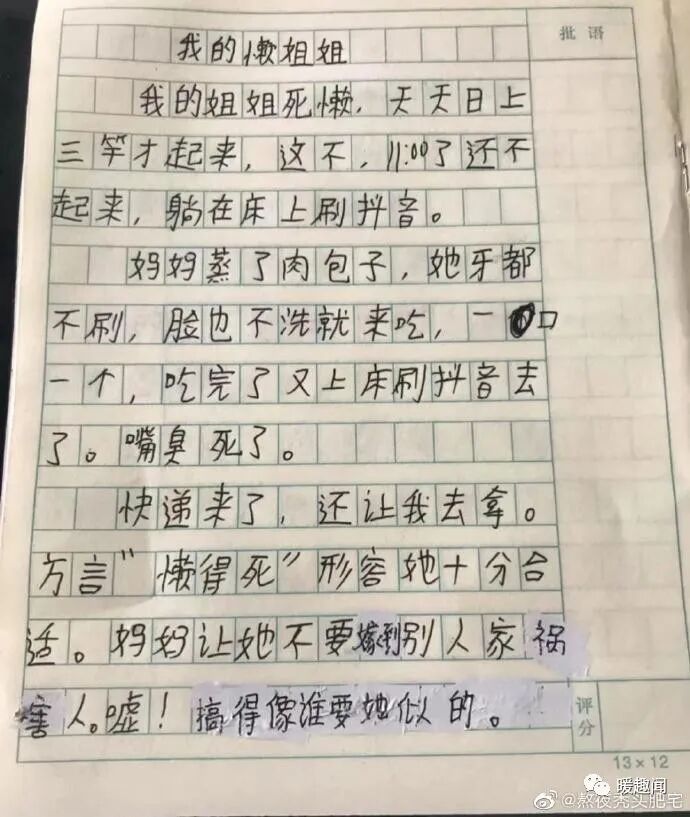 批语
我的懒姐姐
我的姐姐死懒，天天日上
三竿才起来，这不，11:00了还不
起来，躺在床上刷抖音。
妈妈蒸了肉包子，她牙都
不刷，脸也不洗就来吃，一口
一个，吃完了又上床刷抖音去
了。嘴臭死了。
快递来了，还让我去拿。
方言“懒得死”形容她十分合
适。妈妈让她不要嫁到别人家祸
害人。嘘！搞得像谁要她似的。
评分
13×12
暖趣闻
@熬夜秃头肥宅